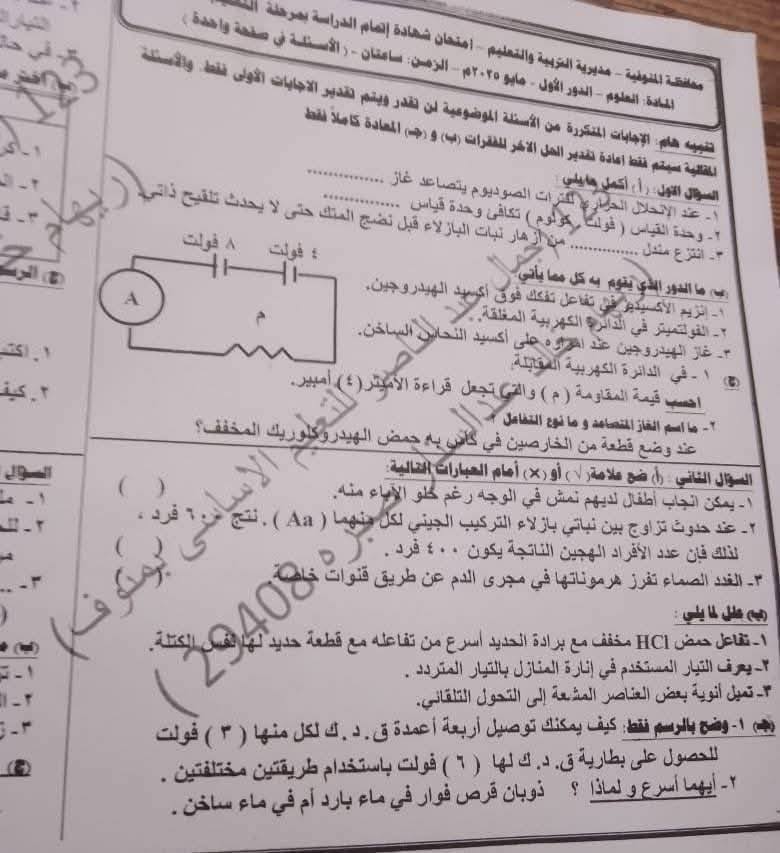 محافظة المنوفية – مديرية التربية والتعليم – امتحان شهادة إتمام الدراسة بمرحلة التعليم
المادة: العلوم – الدور الأول – مايو ٢٠٢٥م – الزمن: ساعتان – ( الأسئلة في صفحة واحدة )
تنبيه هام: الإجابات المتكررة عن الأسئلة الموضوعية لن تقدر ويتم تقدير الإجابات الأولى فقط، والأسئلة
المقالية سيتم فقط إعادة تقدير الحل الآخر للفقرات (ب) و (جـ) المعادلة كاملاً فقط
السؤال الأول: (أ) أكمل ما يلي:
١- عند الانحلال الحراري لنترات الصوديوم يتصاعد غاز ...............
٢- وحدة القياس ( فولت . كولوم ) تكافئ وحدة قياس ...............
٣- انتزع مندل ............... من أزهار نبات البازلاء قبل نضج المتك حتى لا يحدث تلقيح ذاتي.
(ب) ما الدور الذي يقوم به كل مما يأتي:
١- إنزيم الأكسيديز في تفاعل تفكك فوق أكسيد الهيدروجين.
٢- الفولتميتر في الدائرة الكهربية المغلقة.
٣- غاز الهيدروجين عند امراره على أكسيد النحاس الساخن.
(ج) ١ - في الدائرة الكهربية المقابلة:
احسب قيمة المقاومة ( م ) والتي تجعل قراءة الأميتر ( ٤ ) أمبير.
٨ فولت
٤ فولت
A
م
٢- ما اسم الغاز المتصاعد و ما نوع التفاعل ؟
عند وضع قطعة من الخارصين في كأس به حمض الهيدروكلوريك المخفف؟
السؤال الثاني: (أ) ضع علامة (√) أو (×) أمام العبارات التالية:
١- يمكن انجاب أطفال لديهم نمش في الوجه رغم خلو الآباء منه. ( )
٢- عند حدوث تزاوج بين نباتي بازلاء التركيب الجيني لكل منهما ( Aa ) . نتج ٦٠٠ فرد ،
لذلك فإن عدد الأفراد الهجين الناتجة يكون ٤٠٠ فرد . ( )
٣- الغدد الصماء تفرز هرموناتها في مجرى الدم عن طريق قنوات خاصة. ( )
(ب) علل لما يلي :
١- تفاعل حمض HCl مخفف مع برادة الحديد أسرع من تفاعله مع قطعة حديد لها نفس الكتلة.
٢- يعرف التيار المستخدم في إنارة المنازل بالتيار المتردد .
٣- تميل أنوية بعض العناصر المشعة إلى التحول التلقائي.
(جـ) ١- وضح بالرسم فقط: كيف يمكنك توصيل أربعة أعمدة ق . د . ك لكل منها ( ٣ ) فولت
للحصول على بطارية ق . د . ك لها ( ٦ ) فولت باستخدام طريقتين مختلفتين .
٢- أيهما أسرع و لماذا ؟ ذوبان قرص فوار في ماء بارد أم في ماء ساخن .
جمال عبد الناصر للتعليم الأساسي بمنوف )
( 29408